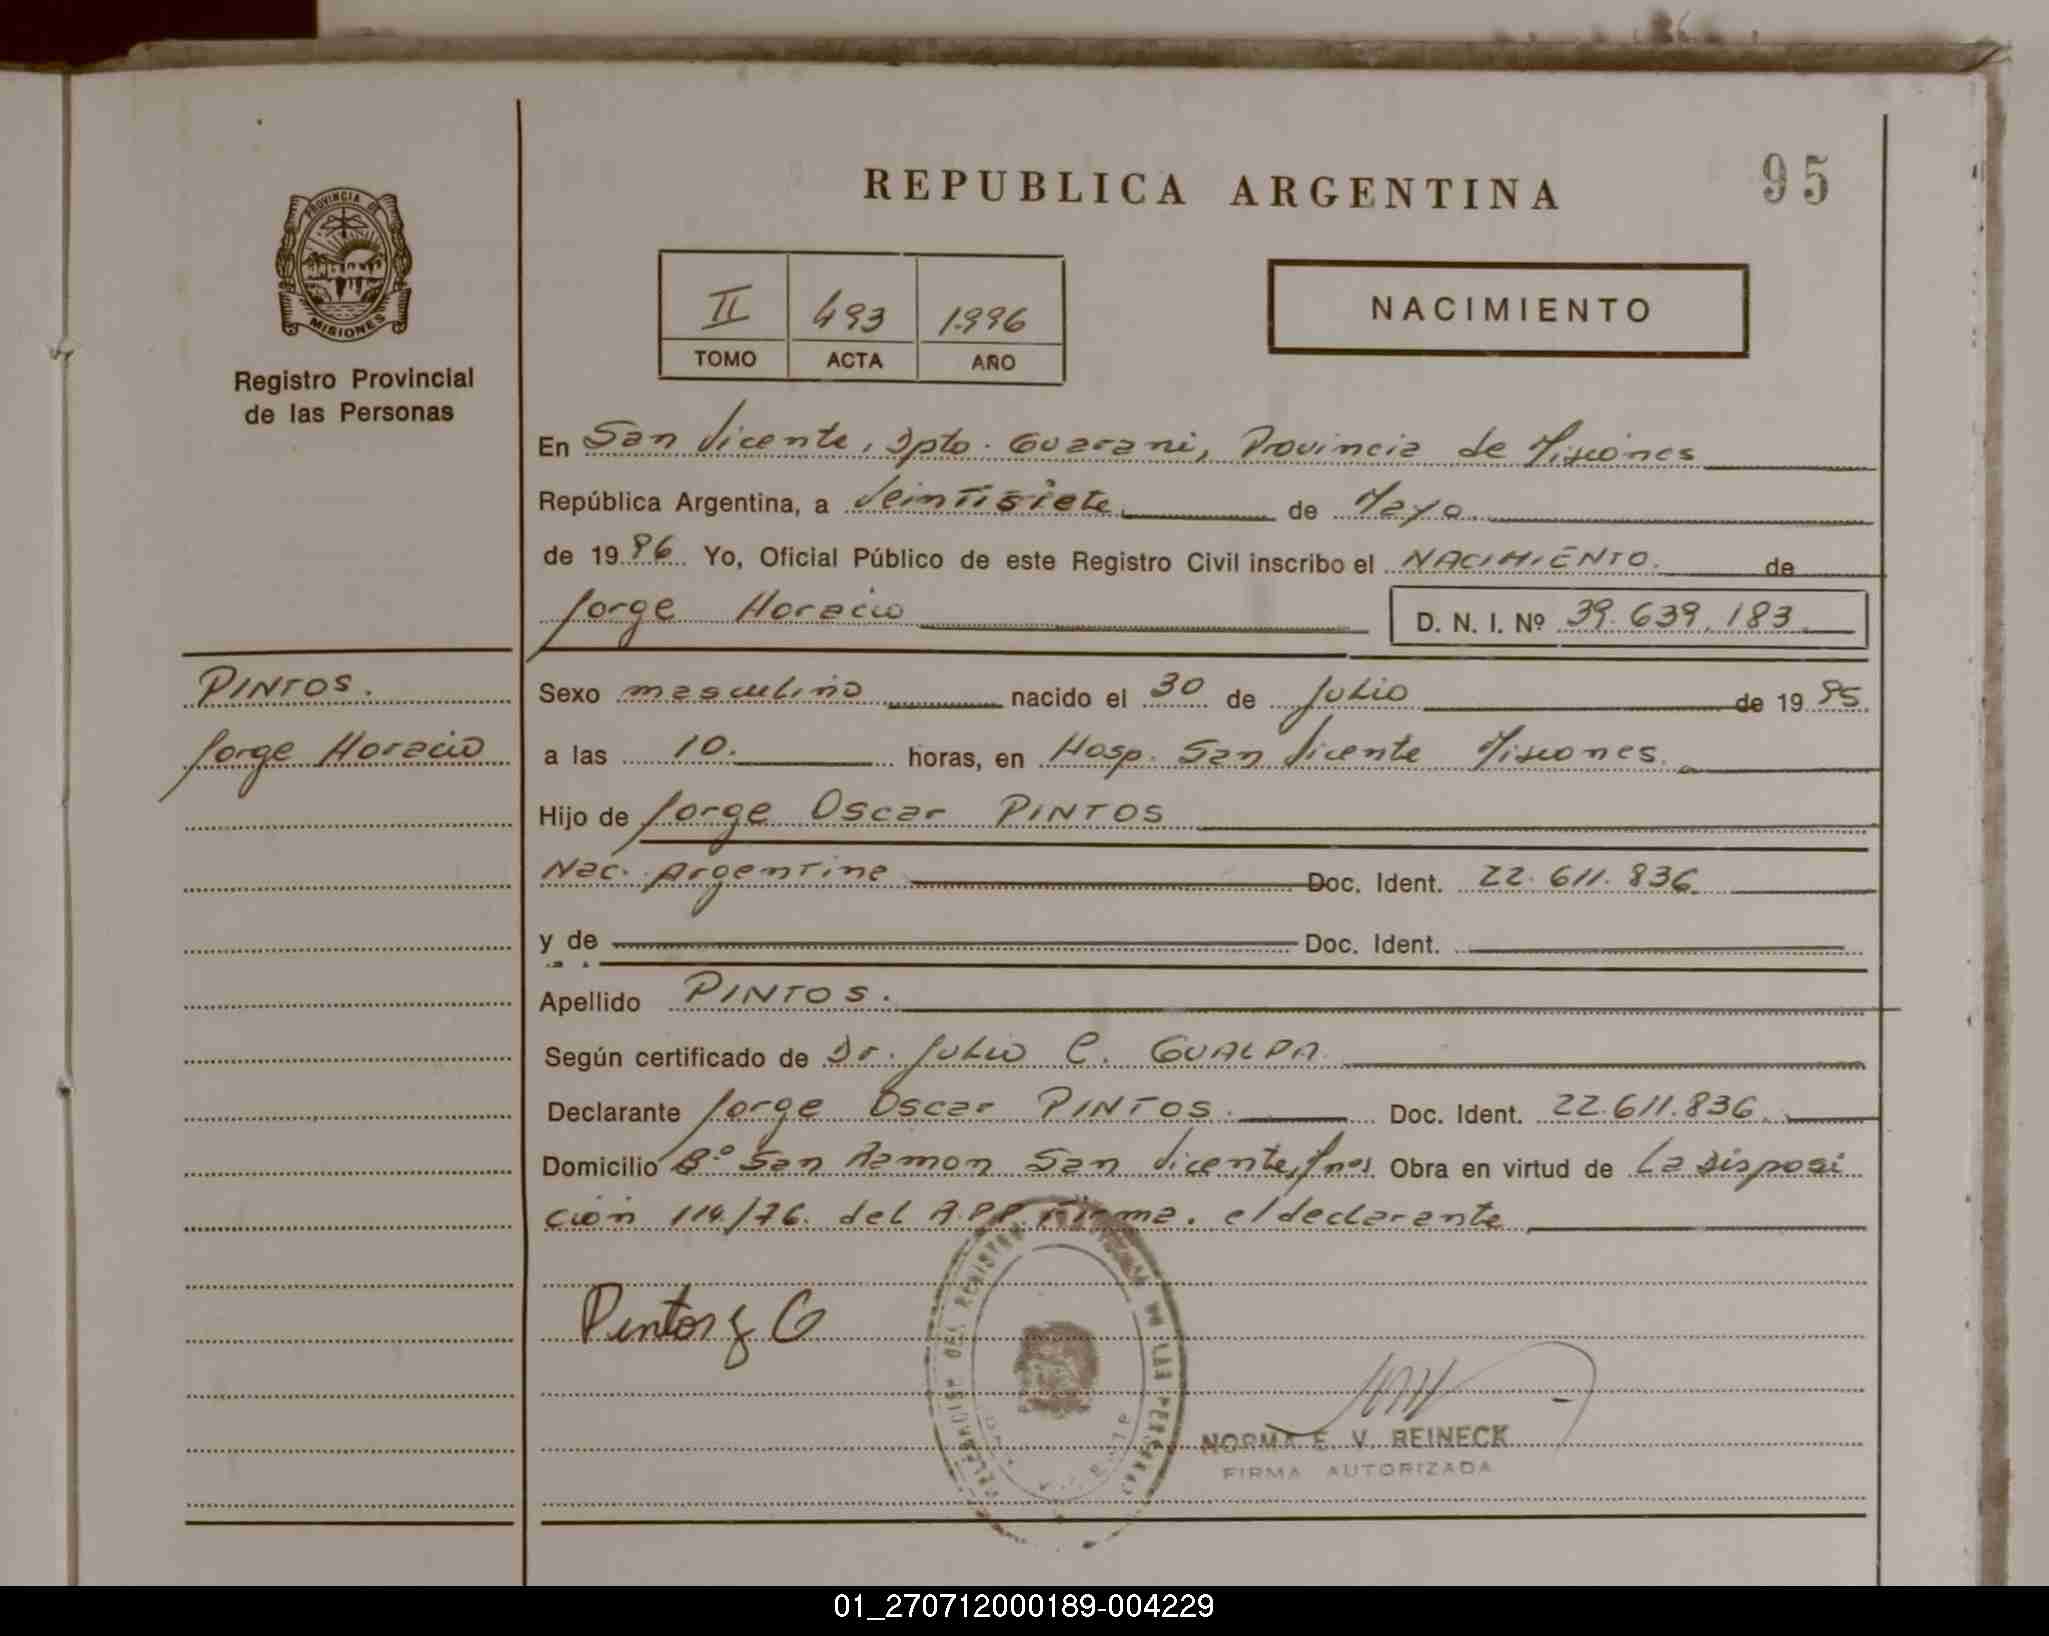 REPUBLICA ARGENTINA
95
PROVINCIA DE
MISIONES
Registro Provincial
de las Personas
II 493 1996
TOMO ACTA AÑO
NACIMIENTO
En San Vicente, Dpto. Guarani, Provincia de Misiones
República Argentina, a Veintisiete de Mayo
de 1996 Yo, Oficial Público de este Registro Civil inscribo el NACIMIENTO. de
Jorge Horacio D. N. I. Nº 39.639.183
PINTOS.
Jorge Horacio
Sexo masculino nacido el 30 de Julio de 1995
a las 10. horas, en Hosp. San Vicente Misiones.
Hijo de Jorge Oscar PINTOS
Nac. Argentina Doc. Ident. 22.611.836.
y de Doc. Ident.
Apellido PINTOS.
Según certificado de Dr. Julio C. GUALPA
Declarante Jorge Oscar PINTOS. Doc. Ident. 22.611.836.
Domicilio Bº San Ramon San Vicente, Mnes. Obra en virtud de La Disposi
ción 114/76. del R.P.P. Firma. el declarante
Pintos J O
DEL REGISTRO DE LAS PERSONAS
NORMA E. V. REINECK
FIRMA AUTORIZADA
01_270712000189-004229